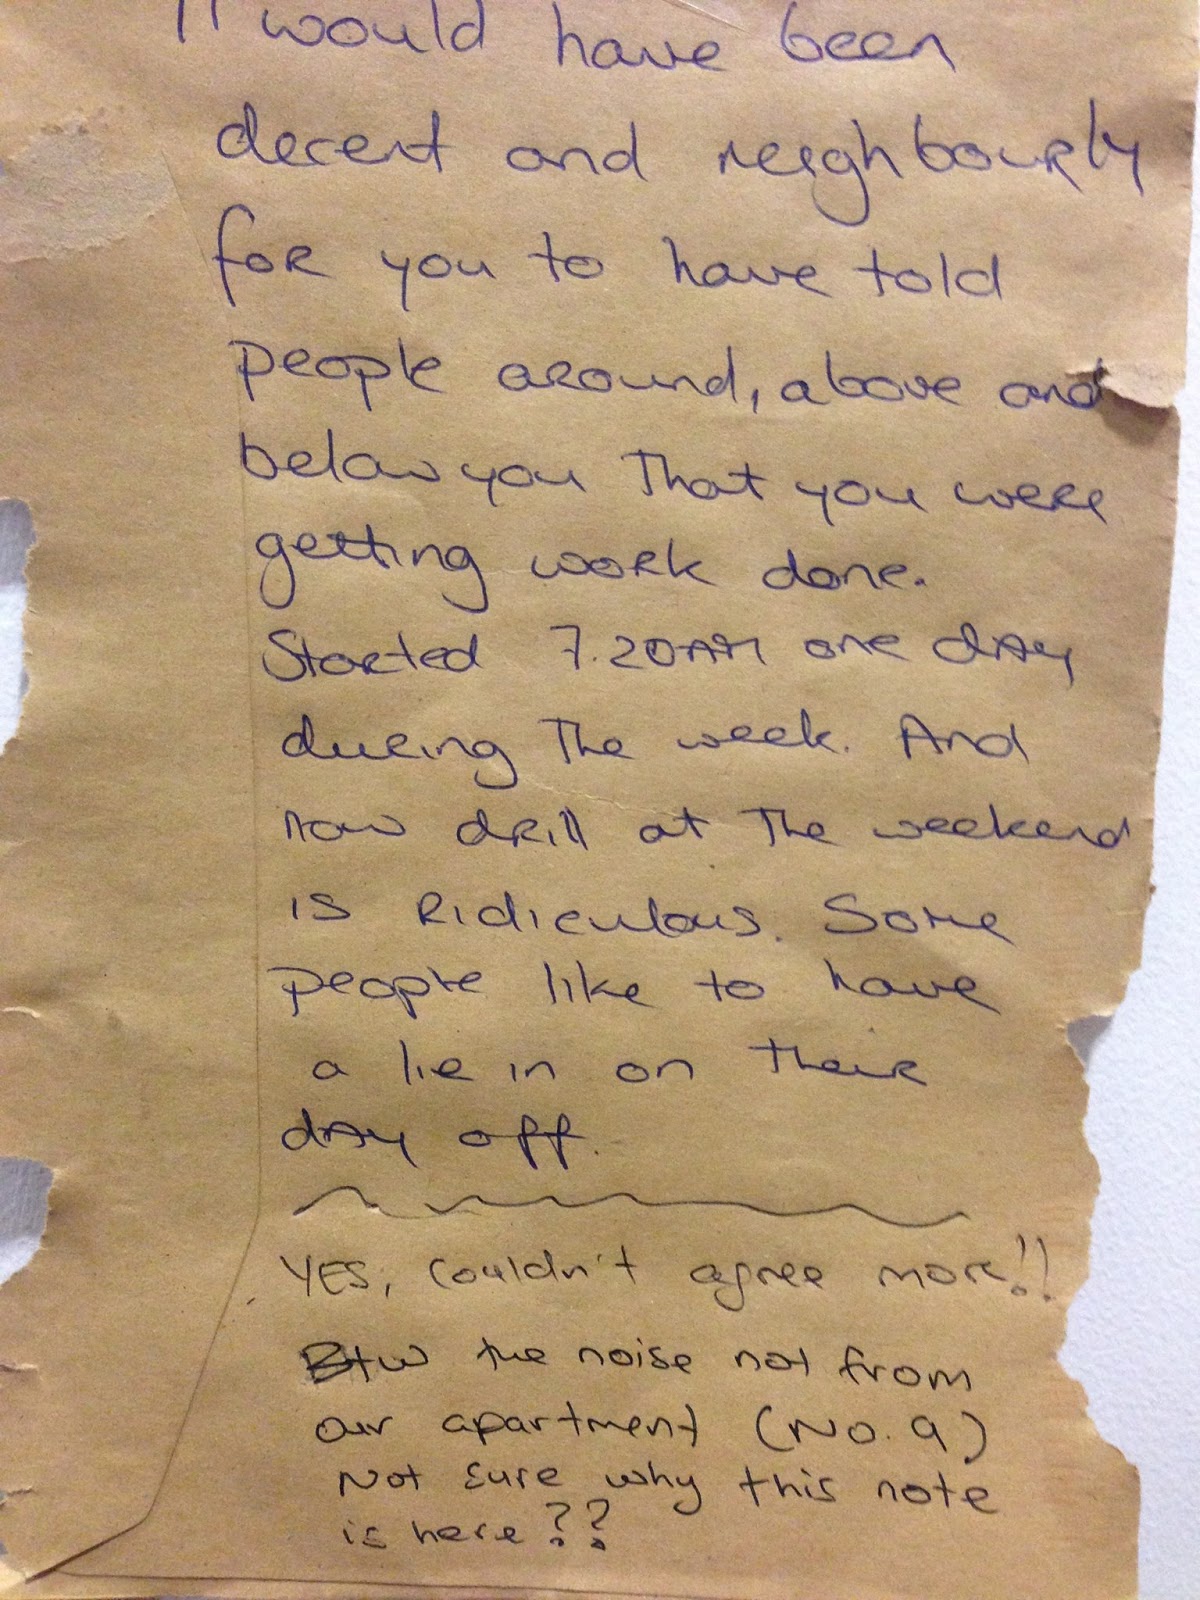 It would have been
decent and neighbourly
for you to have told
people around, above and
below you That you were
getting work done.
Started 7.20AM one dAy
during The week. And
now drill at The weekend
is Ridiculous. Some
people like to have
a lie in on their
dAy off.
YES, couldn't agree more!!
Btw the noise not from
our apartment (No. 9)
Not sure why this note
is here??